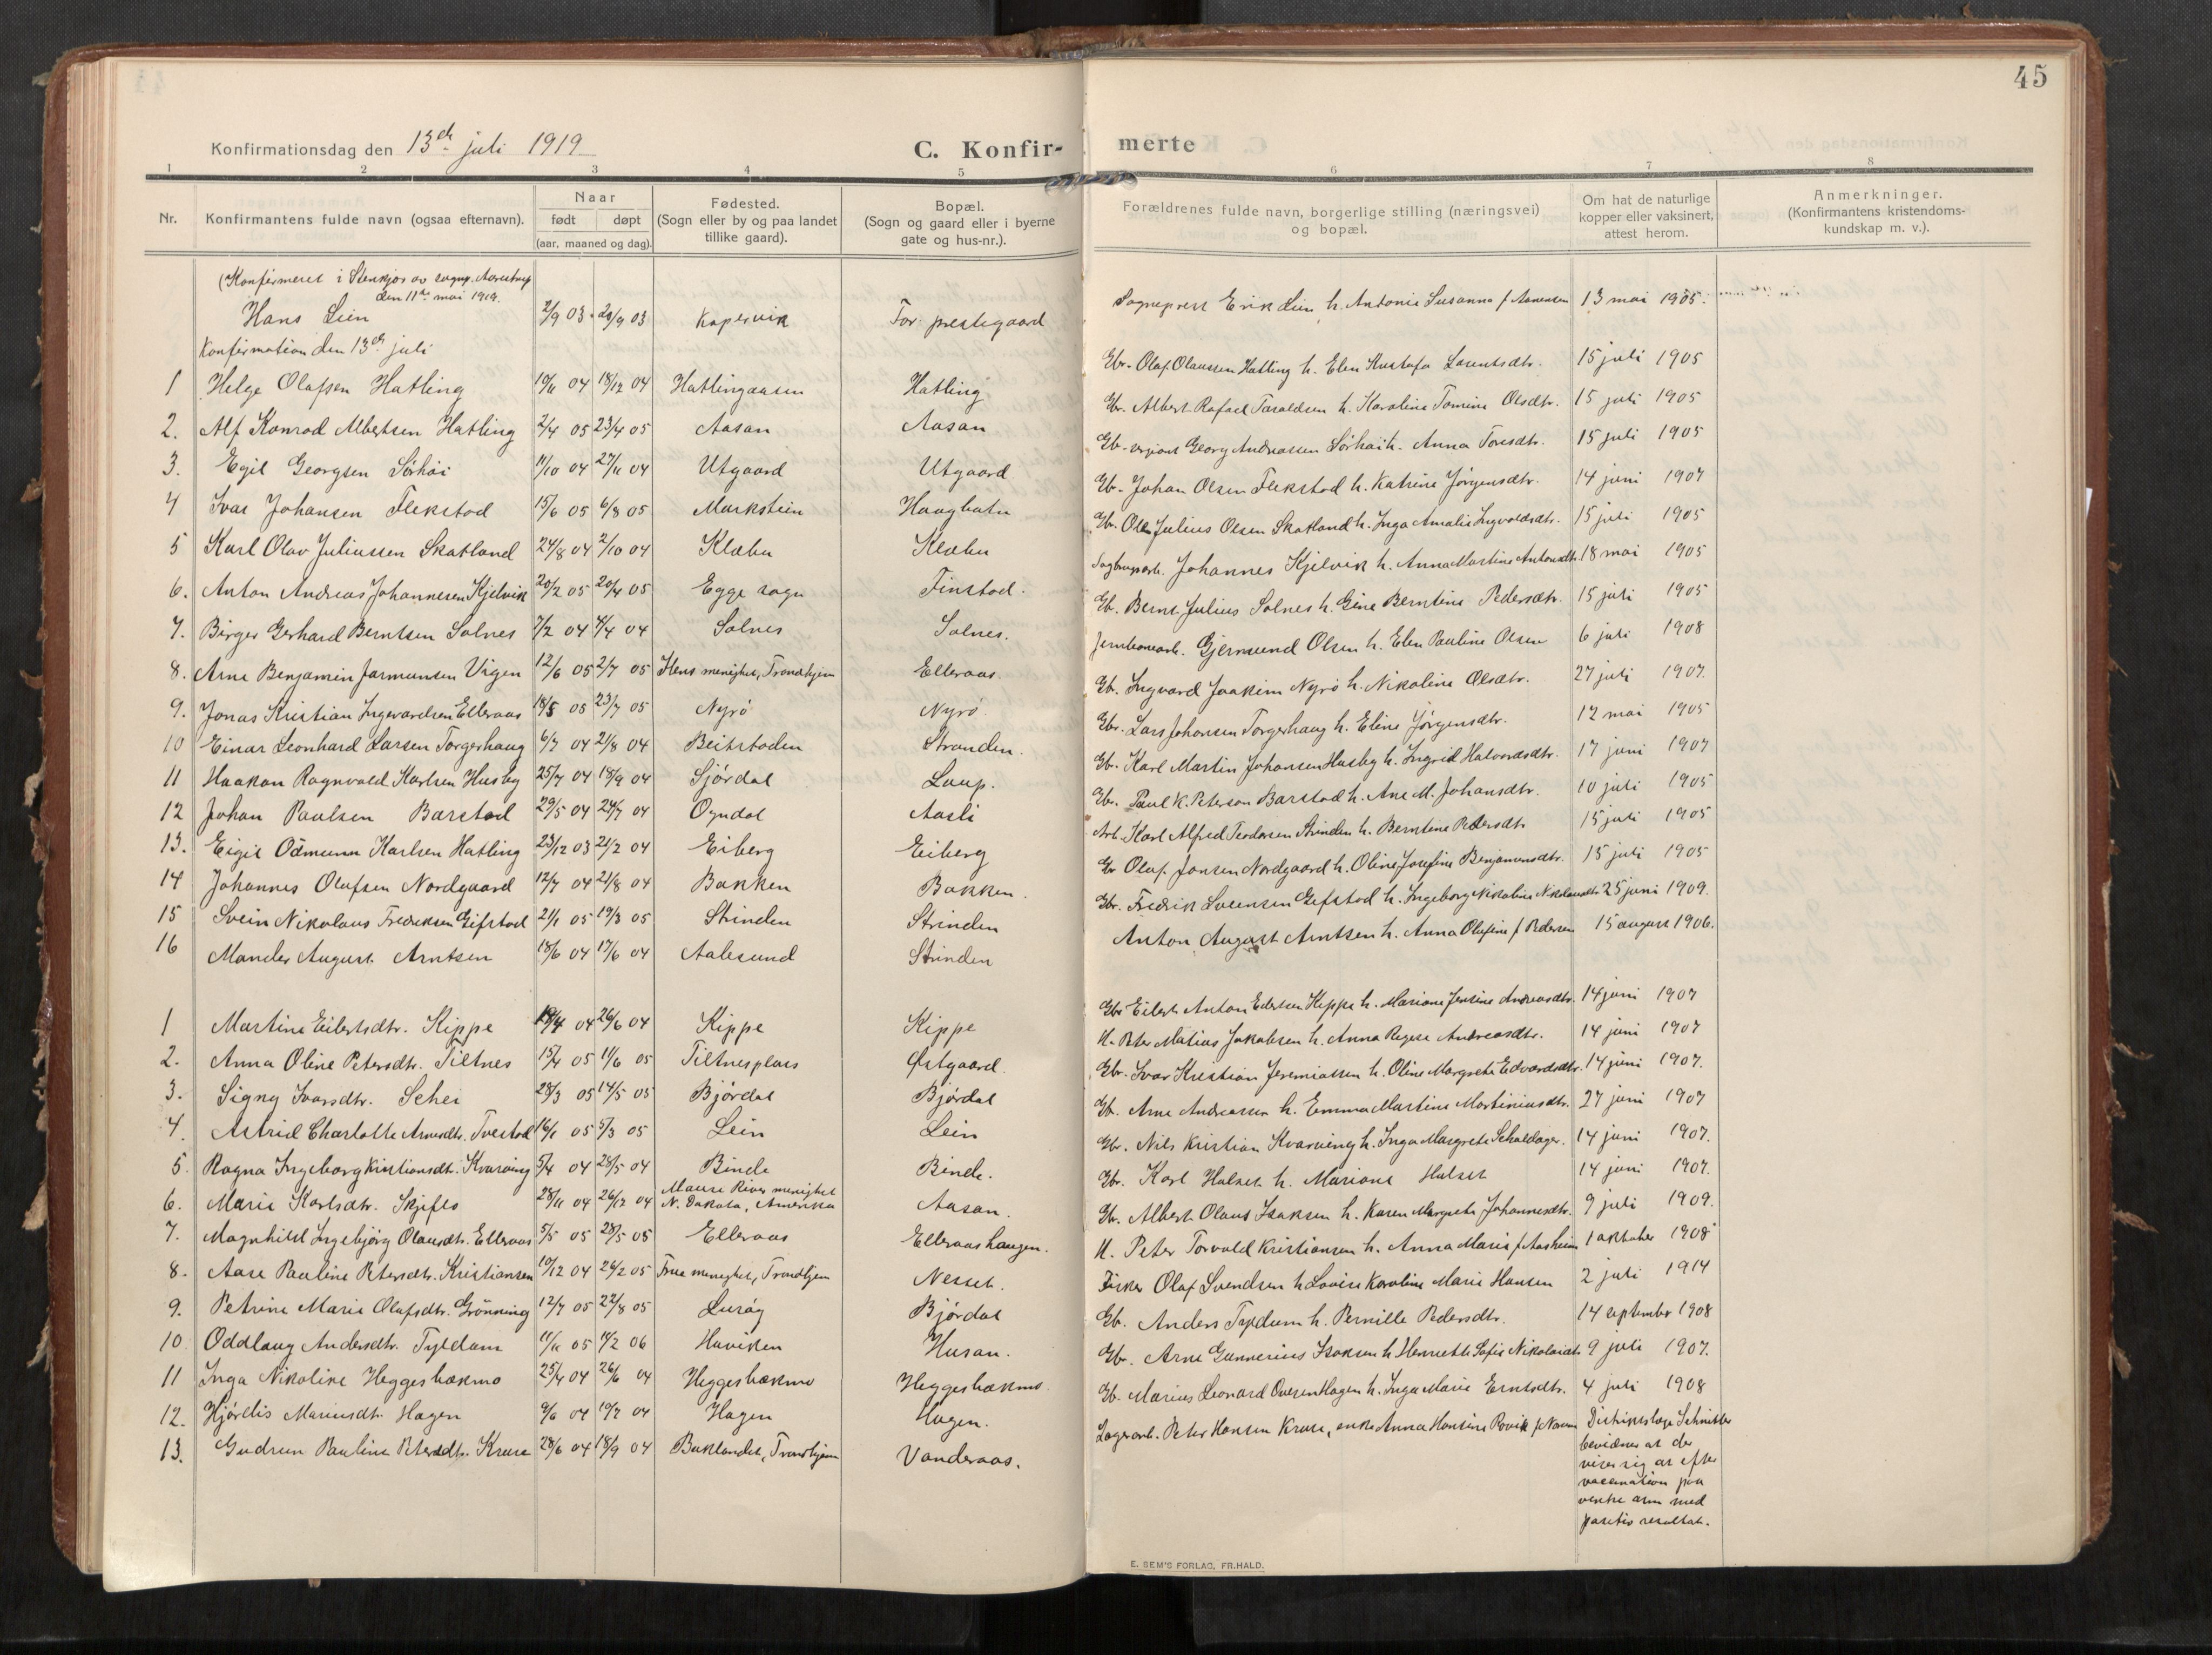 45
Konfirmationsdag den 13de juli 1919
C. Konfir-
merte
1 2 3 4 5 6 7 8
Nr. Konfirmantens fulde navn (ogsaa efternavn). Naar født døpt (aar, maaned og dag). Fødested. (Sogn eller by og paa landet tillike gaard). Bopæl. (Sogn og gaard eller i byerne gate og hus-nr.). Forældrenes fulde navn, borgerlige stilling (næringsvei) og bopæl. Om hat de naturlige kopper eller vaksinert, attest herom. Anmerkninger. (Konfirmantens kristendoms-kundskap m. v.).
(Konfirmeret i Stenkjær av sognp. Aarestrup
den 11te mai 1919.
Hans Lien 2/9 03 20/9 03 Kopervik For prestegaard Sogneprest Erik Lien h. Antonie Susanna f Aanensen 13 mai 1905.
Konfirmation den 13de juli
1 Helge Olafsen Hatling 10/11 04 18/12 04 Hatlingaasen Hatling Gbr. Olaf Olaussen Hatling h. Elen Gustafa Lorentsdtr. 15 juli 1905
2. Alf Konrad Albertsen Hatling 2/4 05 23/4 05 Aasan Aasan Gbr. Albert Rafael Taraldsen h. Karoline Tomine Olsdtr. 15 juli 1905
3. Egil Georgsen Sørhøi 11/10 04 27/11 04 Utgaard Utgaard Gb. Georg Andreassen Sørhøi h. Anna Toresdtr. 15 juli 1905
4 Ivar Johansen Flekstad 15/6 05 6/8 05 Markstein Haugbatn Gb. Johan Olsen Flekstad h. Katrine Jørgensdtr. 14 juni 1907
5 Karl Olav Juliussen Skatland 24/8 04 2/10 04 Klæbu Klæbu Gb. Ole Julius Olsen Skatland h. Inga Amalie Ingvaldsdtr. 15 juli 1905
6. Anton Andreas Johannesen Kjelvik 20/2 05 20/4 05 Egge sogn Finstad. Sagbruksarb. Johannes Kjelvik h. Anna Martine Antonsdtr. 18 mai 1905
7. Birger Gerhard Berntsen Solnes 7/2 04 4/4 04 Solnes Solnes. Gb. Bernt Julius Solnes h. Gine Berntine Pedersdtr. 15 juli 1905
8. Arne Benjamin Jarmunsen Vigen 12/6 05 2/7 05 Ilens menighet, Trondhjem Elleraas. Jernbanearb. Gjermund Olsen h. Elen Pauline Olsen 6 juli 1908
9. Jonas Kristian Ingevardsen Elleraas 18/5 05 23/7 05 Nyrø Nyrø Gb. Ingvard Joakim Nyrø h. Nikoline Olsdtr. 27 juli 1907.
10 Einar Leonhard Larsen Torgerhaug 6/7 04 21/8 04 Beitstaden Stranden. Gbr. Lars Johansen Torgerhaug h. Eline Jørgensdtr. 12 mai 1905
11 Haakon Ragnvald Karlsen Husby 25/7 04 18/9 04 Sjørdal Laup. Gb. Karl Martin Johansen Husby h. Ingrid Halvordsdtr. 17 juni 1907
12 Johan Paulsen Barstad 29/5 04 24/7 04 Ogndal Aasli Gbr. Paul K. Peterson Barstad h. Ane M. Johansdtr. 10 juli 1905
13. Eigil Odmunn Karlsen Hatling 23/12 03 21/2 04 Eiberg Eiberg Arb. Karl Alfred Teodorsen Strinden h. Berntine Pedersdtr 15 juli 1905
14 Johannes Olafsen Nordgaard 12/7 04 21/8 04 Bakken Bakken. Gb Olaf Jonsen Nordgaard h. Oline Josefine Benjaminsdtr. 15 juli 1905
15 Svein Nikolaus Fredriksen Gifstad 21/1 05 19/3 05 Strinden Strinden Gbr. Fredrik Lorensen Gifstad h. Ingeborg Nikoline Nikolausdtr. 25 juni 1909.
16 Mander August Arntsen 18/6 04 17/6 04 Aalesund Strinden Anton August Arntsen h. Anna Olufine f Pedersen 15 august 1906.
1 Martine Eilertsdtr. Kippe 19/4 04 26/6 04 Kippe Kippe Gbr Eilert Anton Edersen Kippe h. Mariane Jensine Andreasdtr. 14 juni 1907
2. Anna Oline Petersdtr. Tiltnes 15/4 05 11/6 05 Tiltnesplass Østgaard. H. Peter Matius Jakobsen h. Anna Regese Andreasdtr. 14 juni 1907
3. Signy Ivarsdtr. Schei 28/3 05 14/5 05 Bjørdal Bjørdal Gbr. Ivar Kristian Jeremiassen h. Oline Margrete Edvardsdtr. 14 juni 1907.
4. Astrid Charlotte Arnesdtr. Tvestad 16/1 05 5/3 05 Lein Lein Gb. Arne Andreassen h. Emma Martine Martiniusdtr. 27 juni 1907
5. Ragna Ingeborg Kristiansdtr. Kvarving 5/4 04 29/5 04 Binde Binde. Gbr. Nils Kristian Kvarving h. Inga Margrete Schaldager. 14 juni 1907.
6. Marie Karlsdtr. Skjifls 28/11 04 26/12 04 Mause River menighet N. Dakota, Amerika Aasan. Gbr. Karl Halset h. Mariane Halset 14 juni 1907.
7. Magnhild Ingebjørg Olausdtr. Elleraas 5/5 05 28/5 05 Elleraas Elleraashaugen. Gb. Albert Olaus Isaksen h. Karen Margrete Johannesdtr. 9 juli 1909.
8. Aase Pauline Petersdtr. Kristiansen 10/12 04 26/2 05 Frue menighet, Trondhjem Nesset. H. Peter Torvald Kristiansen h. Anna Marie f Aasheim 1 oktober 1908
9. Petrine Marie Olafsdtr. Grønning 12/7 05 22/8 05 Lurøy Bjørdal Fisker Olaf Svendsen h Lovise Karoline Marie Hansen 2 juli 1914
10. Oddlaug Andersdtr. Tyldum 11/11 05 14/2 06 Haviken Husan. Gb. Anders Tyldum h. Pernille Pedersdtr. 14 september 1908
11 Inga Nikoline Heggesbækmo 25/4 04 26/6 04 Heggesbækmo Heggesbækmo Gb. Arne Gunnerius Isaksen h Henriette Sofie Nikolaidtr. 9 juli 1907.
12. Hjørdis Mariusdtr. Hagen 9/6 04 19/7 04 Hagen Hagen. Gb. Marius Leonard Ovesen Hagen h. Inga Marie Erntsdtr. 4 juli 1908
13. Gudrun Pauline Petersdtr. Kruse 28/6 04 18/9 04 Baklandet, Trondhjem Vanderaas. Lagerarb. Peter Hansen Kruse, enke Anna Hansine Rovik f Naum Distriktslæge Schnitler
bevidner at der
viser sig at efter
vaccination paa
venstre arm med
positiv resultat.
E. SEM'S FORLAG, FR.HALD.